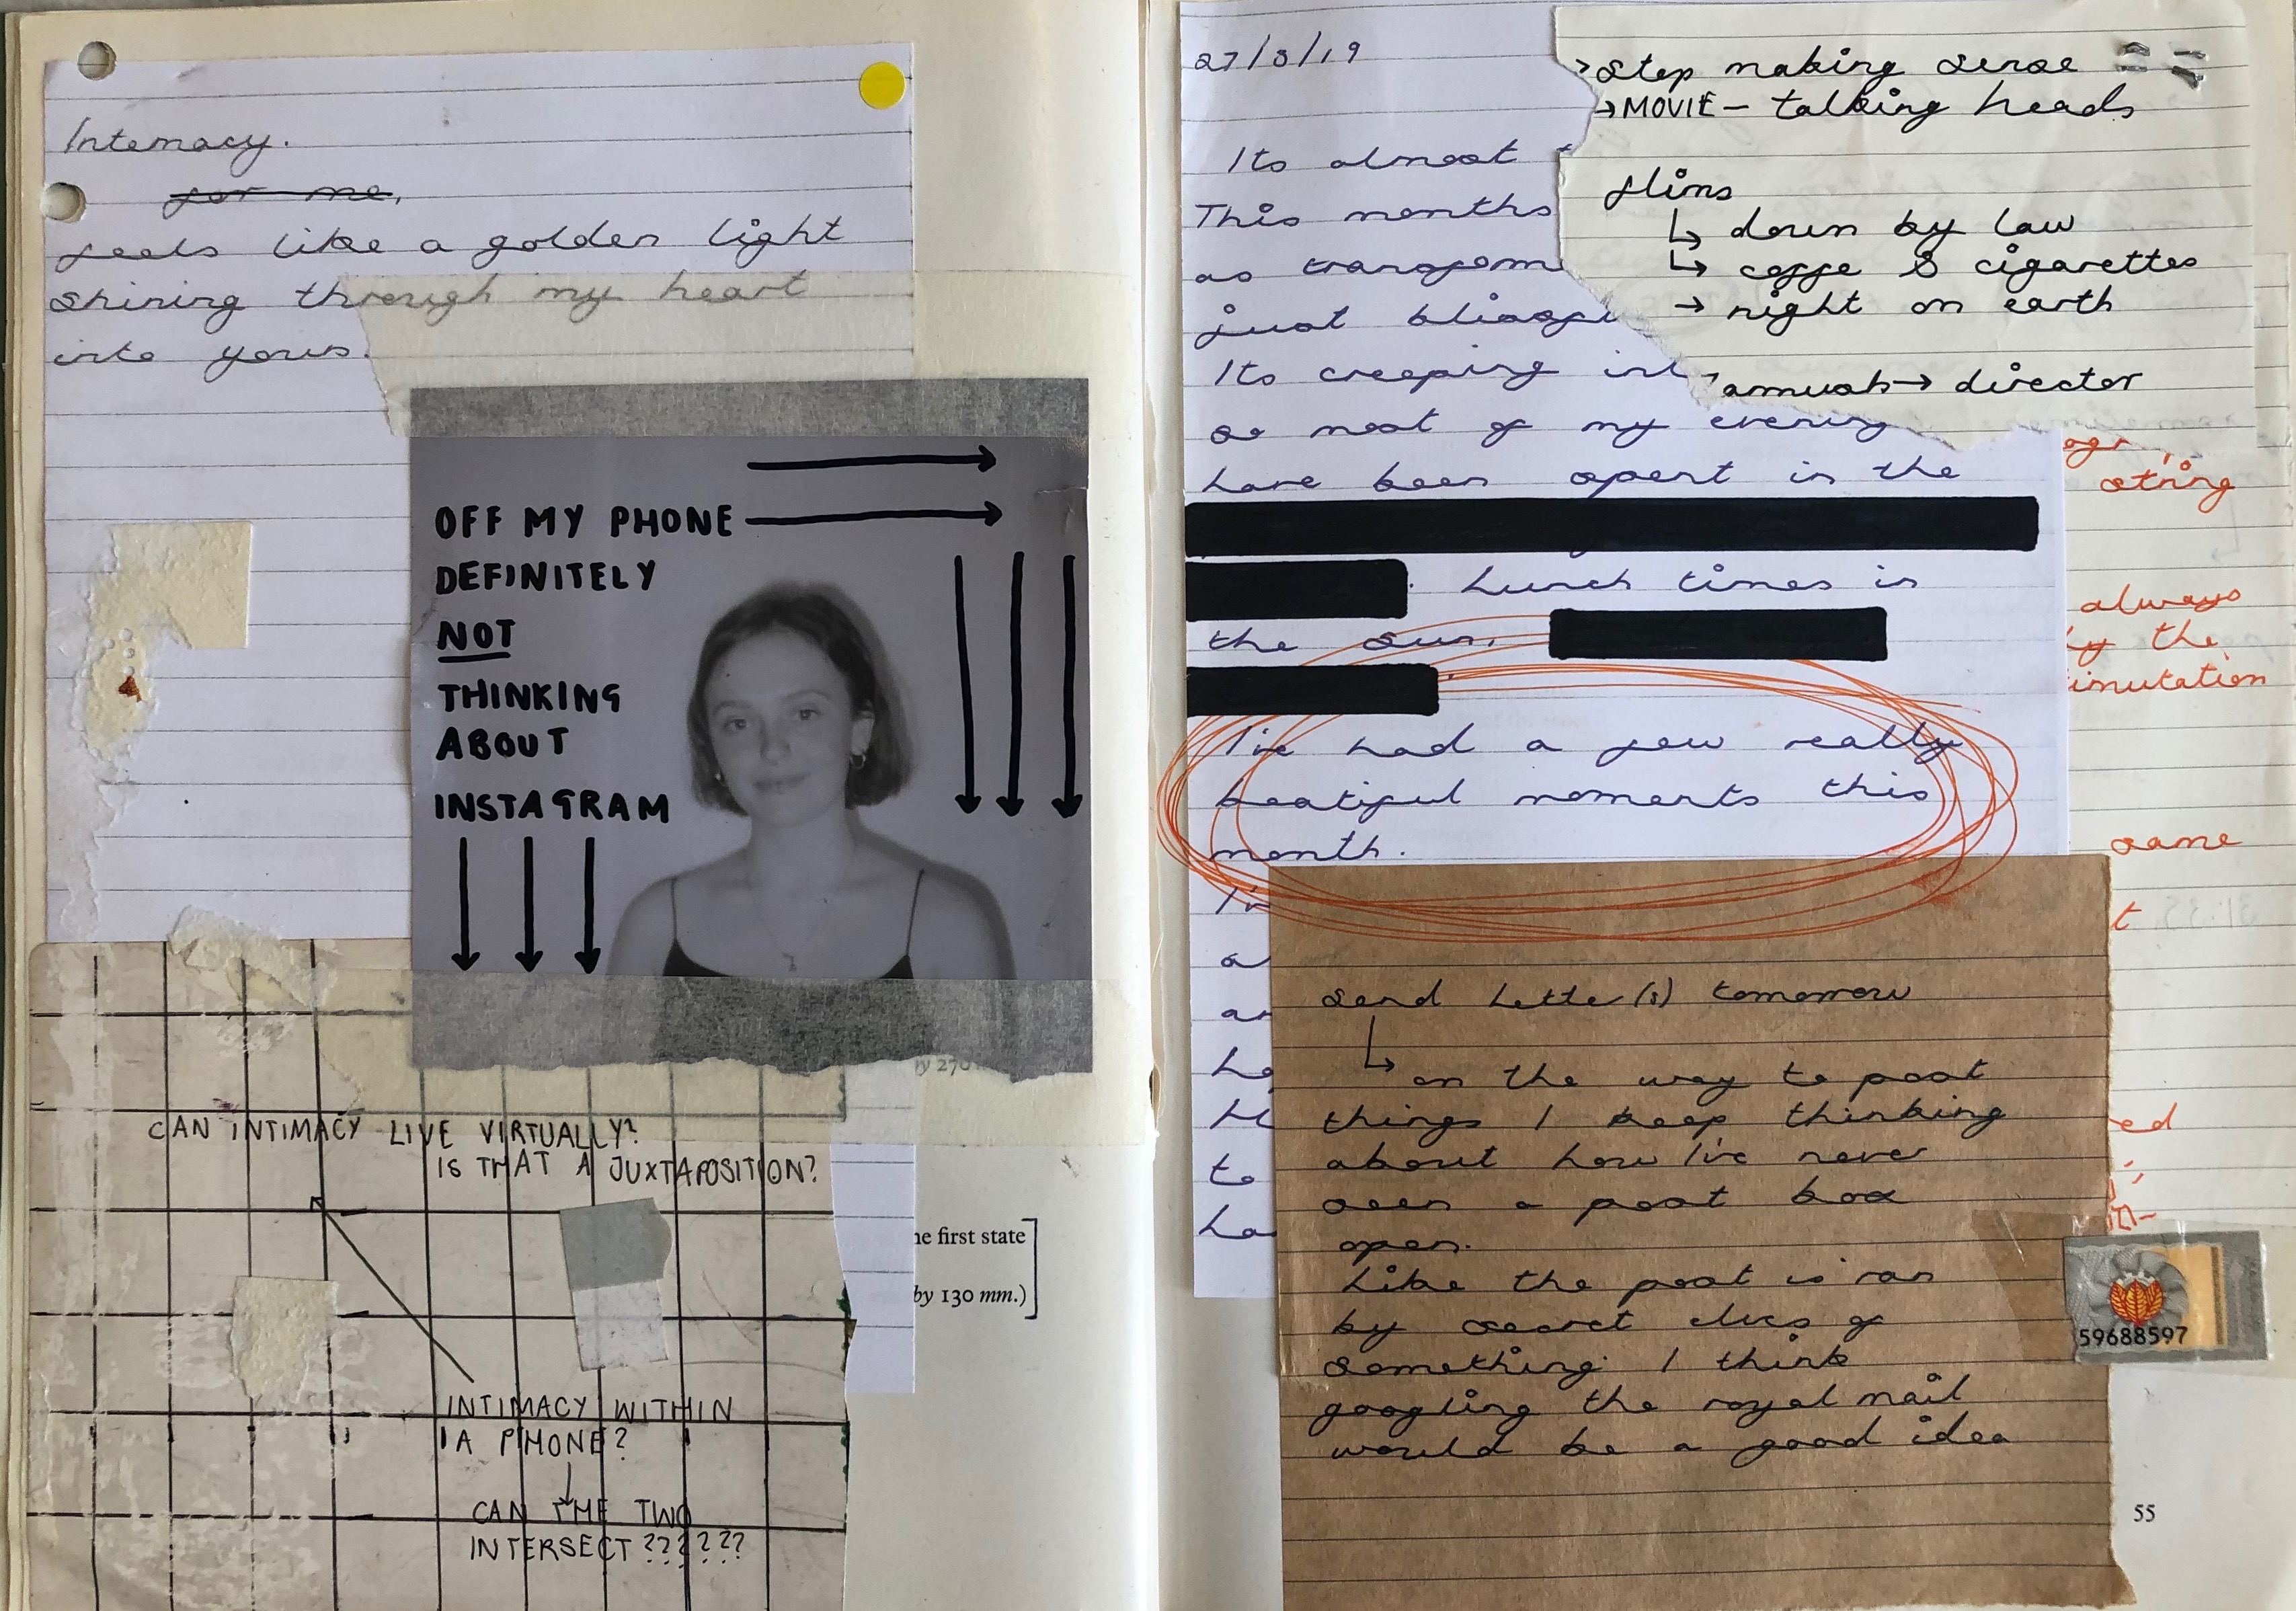 Intemacy.
for me,
feels like a golden light
shining through my heart
into yours.
OFF MY PHONE
DEFINITELY
NOT
THINKING
ABOUT
INSTAGRAM
CAN INTIMACY LIVE VIRTUALLY?
IS THAT A JUXTAPOSITION?
INTIMACY WITHIN
A PHONE?
CAN THE TWO
INTERSECT??????
y 270
he first state
by 130 mm.)
27/3/19
Its almost
This months
as transform
just blissf
Its creeping
so most of my evening
have been spent in the
. Lunch times in
the sun,
I've had a few really
beatiful moments this
month.
to
ha
stop making sense
MOVIE - talking heads
flims
down by law
coffe & cigarettes
night on earth
director
string
always
by the
same
ed
send Lette(s) tomorrow
on the way to post
things I keep thinking
about how I've never
seen a post box
open.
Like the post is ran
by secret elves of
something. I think
googling the royal mail
would be a good idea
59688597
55